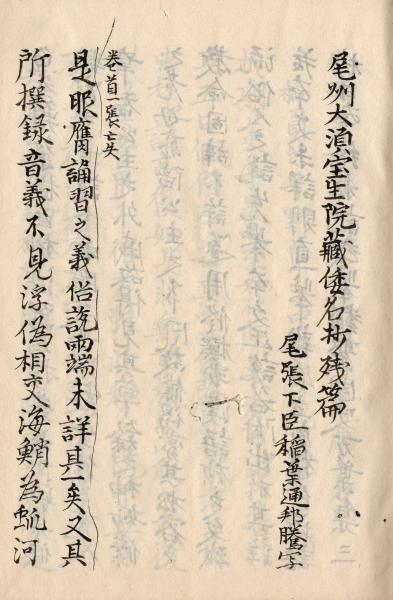 尾州大須宝生院藏倭名抄残篇
尾張下臣稲葉通邦謄写
巻首一張亡矣
是眼膺誦習之義俗説両端未詳其一矣又其
所撰録音義不見浮偽相交海鮹為䖣河